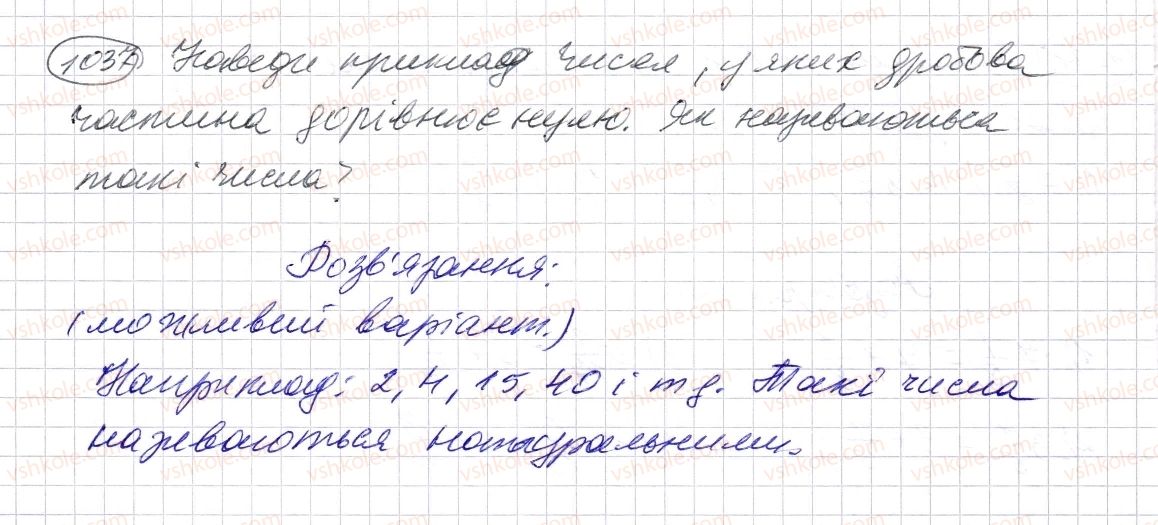 1037 Наведи приклад чисел, у яких дробова
частина дорівнює нулю. Як називаються
такі числа?
Розв'язання:
(можливий варіант.)
Наприклад: 2, 4, 15, 40 і т д. Такі числа
називаються натуральними.